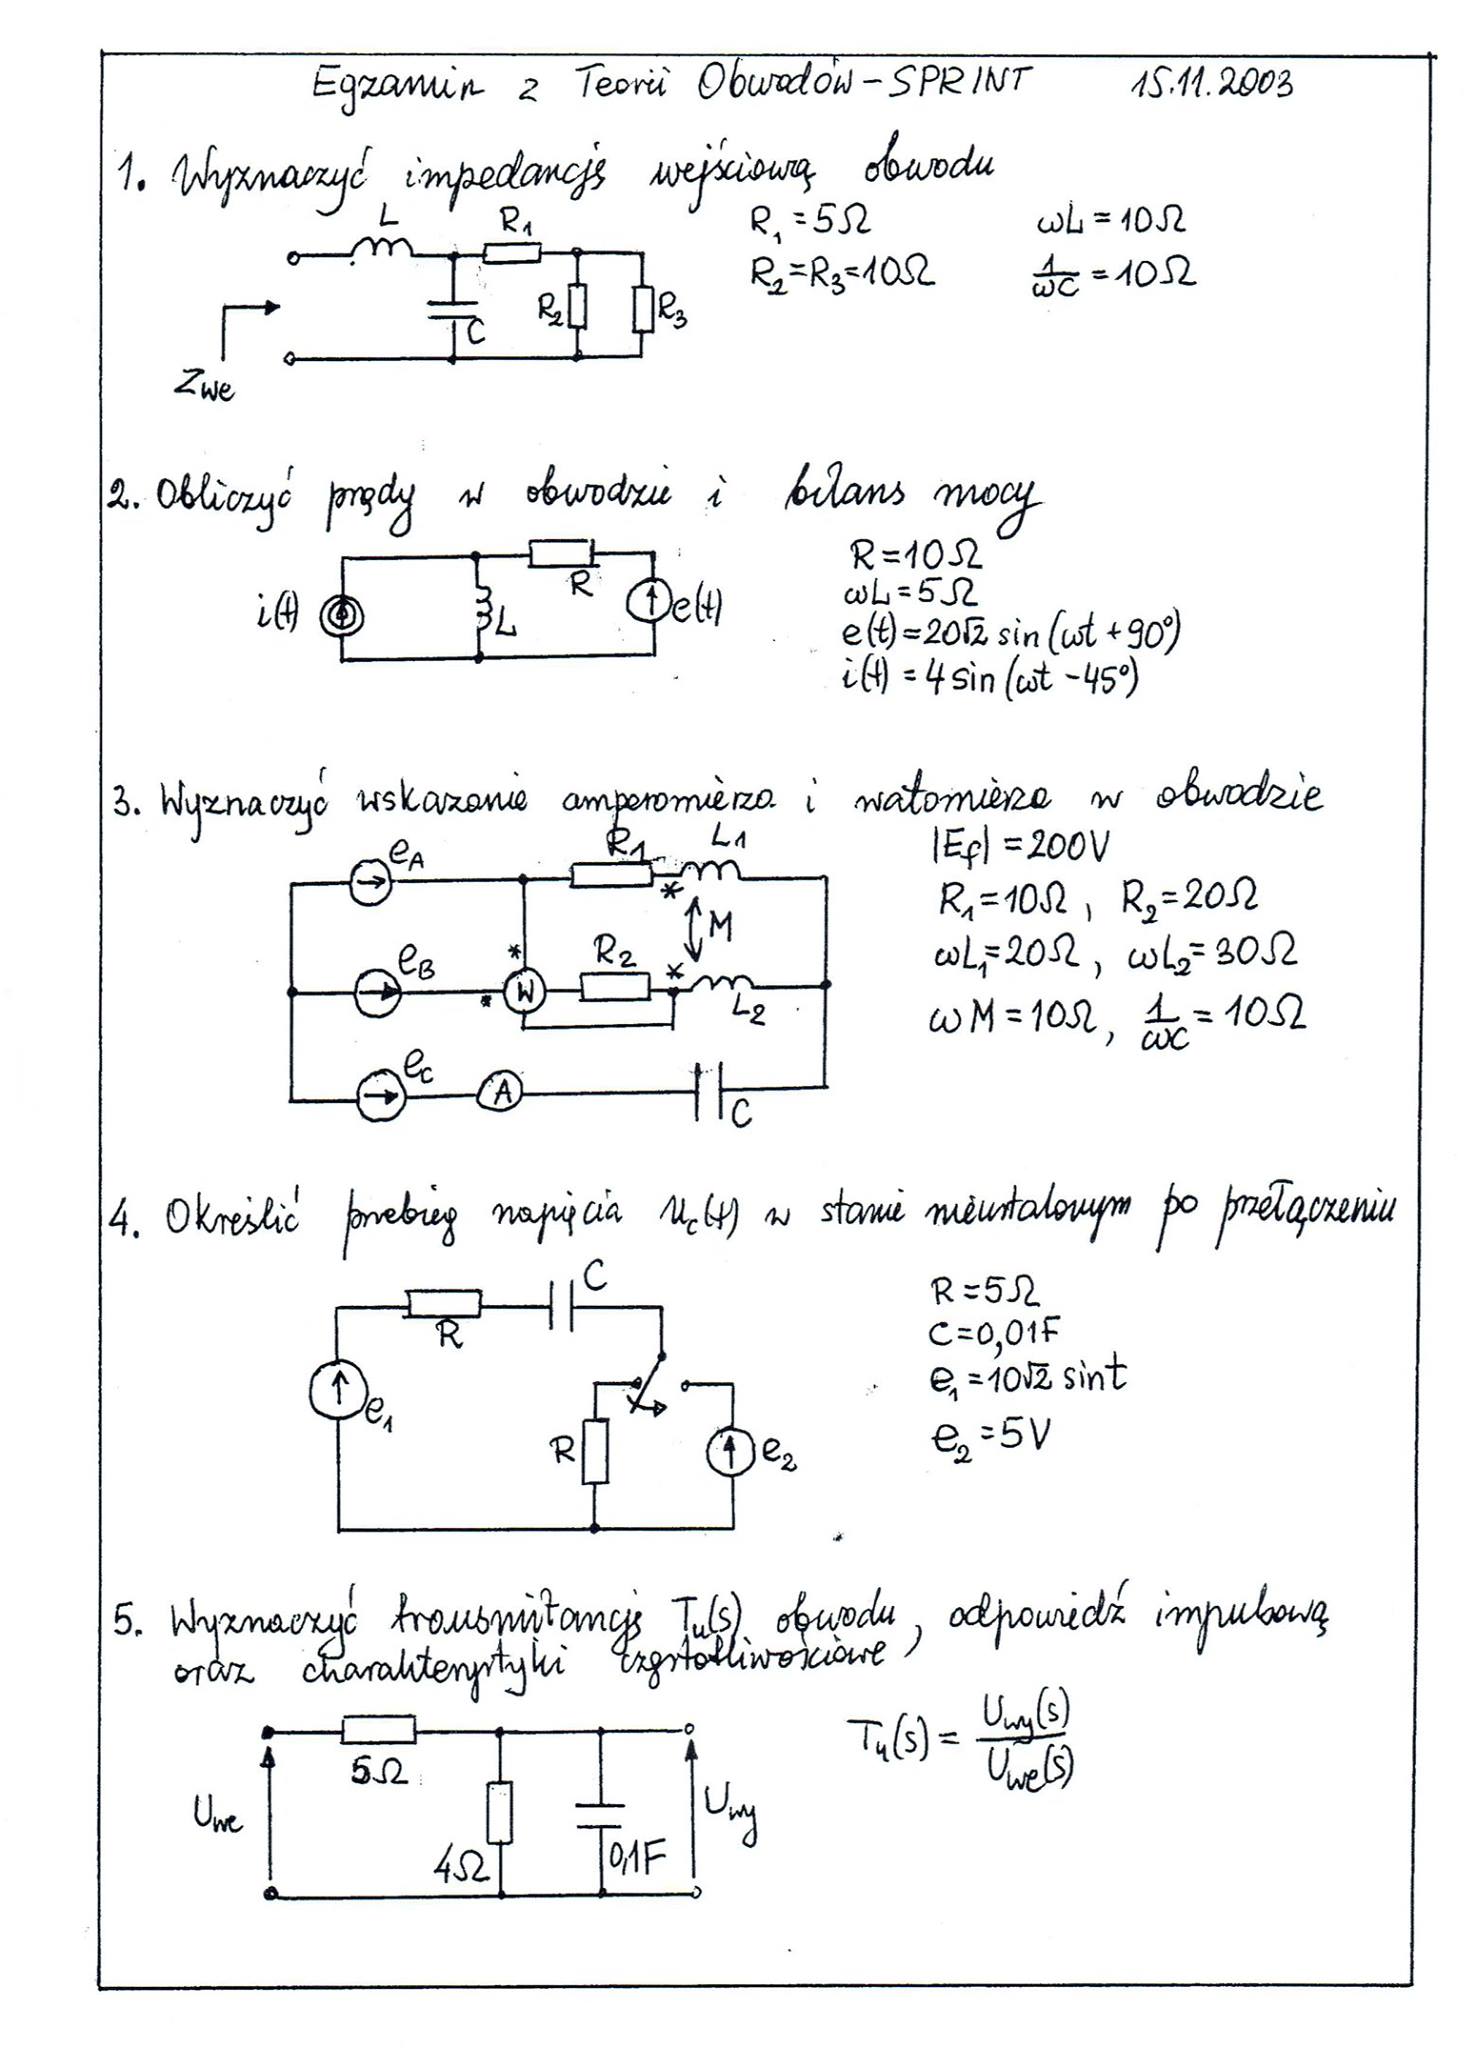 Egzamin z Teorii Obwodów - SPRINT 15.11.2003
1. Wyznaczyć impedancję wejściową obwodu
L
R₁
R₂
R₃
C
Zwe
R₁ = 5Ω ωL = 10Ω
R₂=R₃=10Ω 1/ωC = 10Ω
2. Obliczyć prądy w obwodzie i bilans mocy
i(t)
L
R
e(t)
R=10Ω
ωL=5Ω
e(t)=20√2 sin(ωt+90°)
i(t) = 4 sin(ωt -45°)
3. Wyznaczyć wskazanie amperomierza i watomierza w obwodzie
eA
R1
L1
*
M
eB
*
*
W
R2
*
L2
eC
A
C
|Ef| = 200V
R₁=10Ω, R₂=20Ω
ωL₁=20Ω, ωL₂=30Ω
ωM=10Ω, 1/ωC = 10Ω
4. Określić przebieg napięcia uc(t) w stanie nieustalonym po przełączeniu
R
C
e₁
R
e₂
R=5Ω
C=0,01F
e₁=10√2 sint
e₂=5V
5. Wyznaczyć transmitancję Tu(s) obwodu, odpowiedź impulsową
oraz charakterystyki częstotliwościowe
5Ω
Uwe
4Ω
0,1F
Uwy
Tu(s) = Uwy(s)/Uwe(s)